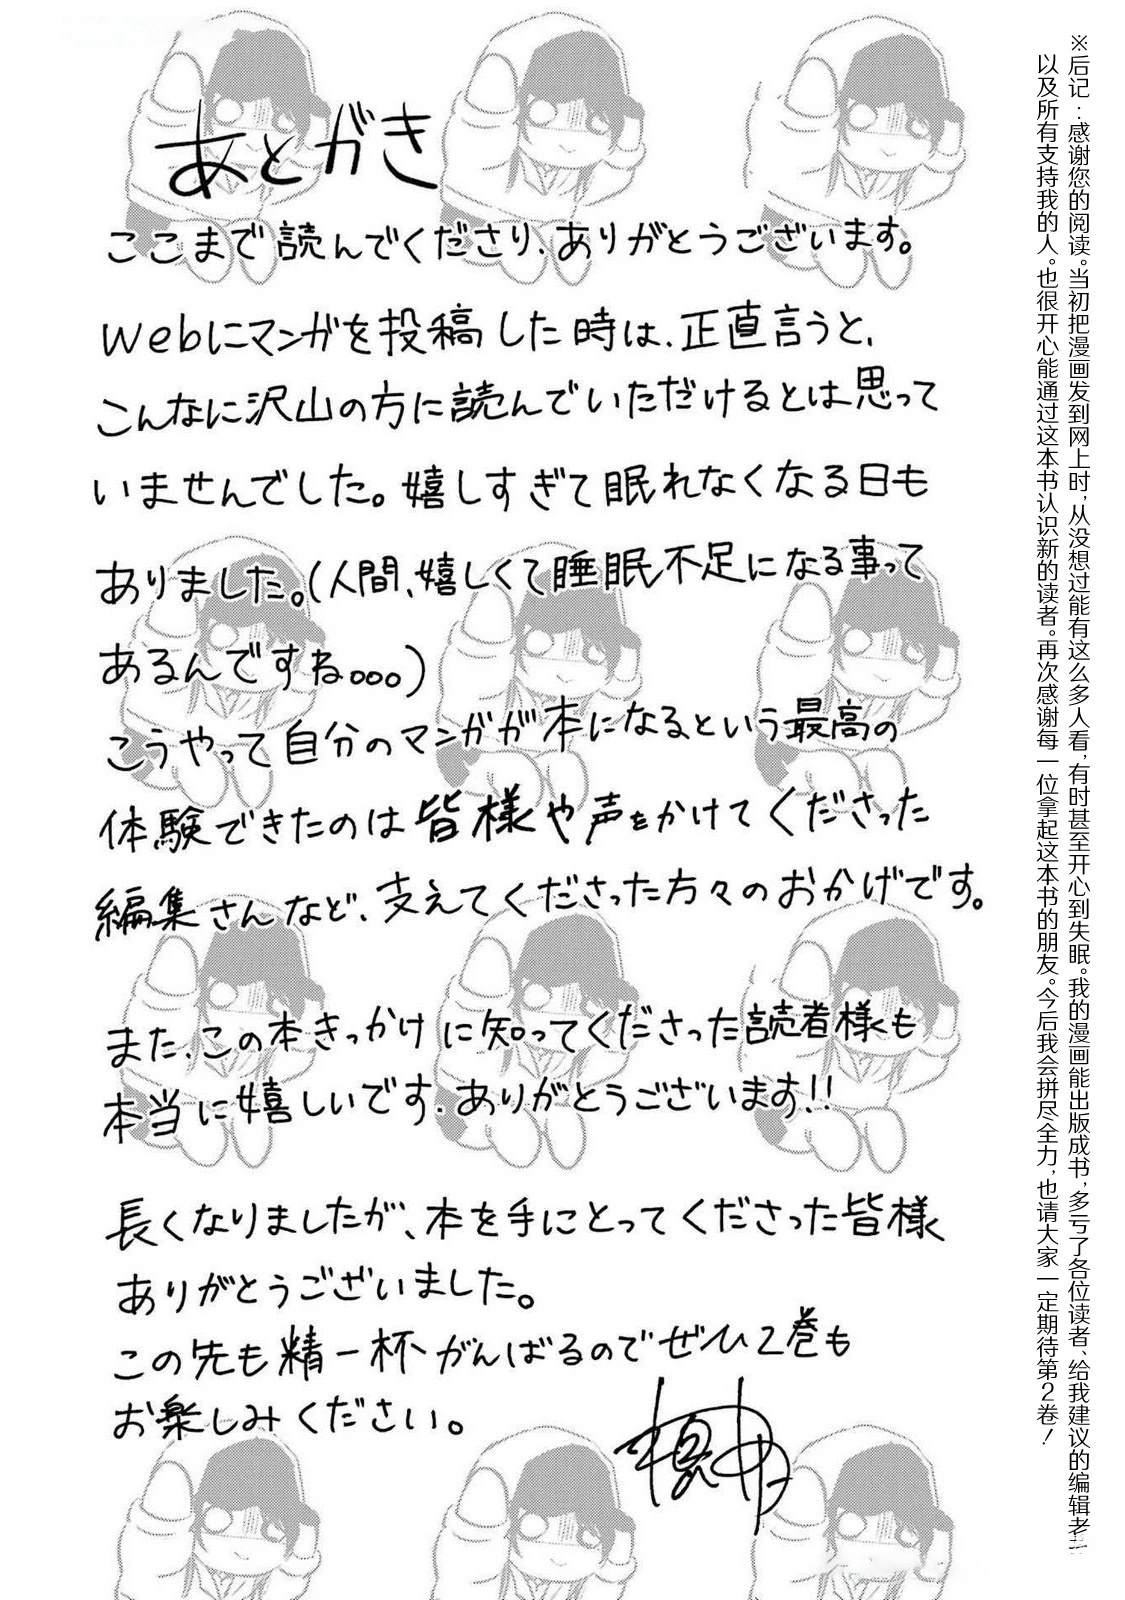 あとがき
ここまで読んでくださり、ありがとうございます。
Webにマンガを投稿した時は、正直言うと、
こんなに沢山の方に読んでいただけるとは思って
いませんでした。嬉しすぎて眠れなくなる日も
ありました。(人間、嬉しくて睡眠不足になる事って
あるんですね。。。)
こうやって自分のマンガが本になるという最高の
体験できたのは皆様や声をかけてくださった
編集さんなど、支えてくださった方々のおかげです。
また、この本きっかけに知ってくださった読者様も
本当に嬉しいです。ありがとうございます!!
長くなりましたが、本を手にとってくださった皆様
ありがとうございました。
この先も精一杯がんばるのでぜひ2巻も
お楽しみください。
※后记:感谢您的阅读。当初把漫画发到网上时,从没想过能有这么多人看,有时甚至开心到失眠。我的漫画能出版成书,多亏了各位读者、给我建议的编辑老
以及所有支持我的人。也很开心能通过这本书认识新的读者。再次感谢每一位拿起这本书的朋友。今后我会拼尽全力,也请大家一定期待第2卷!